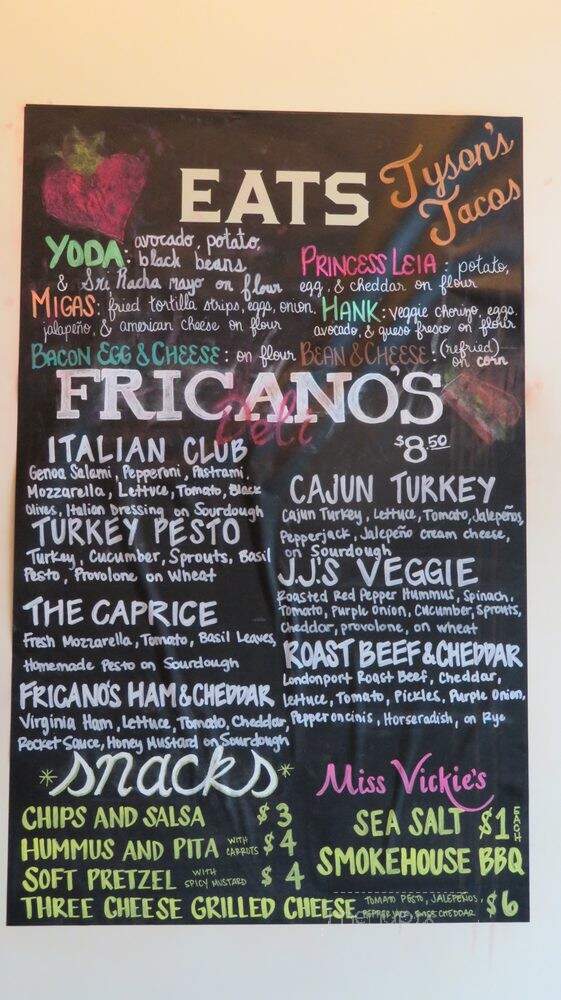 EATS
Tyson's
Tacos
YODA: avocado, potato,
black beans
& Sri Racha mayo on flour
PRINCESS LEIA: potato,
egg, & cheddar on flour
MIGAS: fried tortilla strips, eggs, onion,
jalapeño, & american cheese on flour
HANK: veggie chorizo, eggs,
avocado, & queso fresco on flour
BACON EGG & CHEESE: on flour
BEAN & CHEESE: (refried)
on corn
FRICANO'S
Deli
$8.50
ITALIAN CLUB
Genoa Salami, Pepperoni, Pastrami,
Mozzarella, Lettuce, Tomato, Black
Olives, Italian Dressing on Sourdough
TURKEY PESTO
Turkey, Cucumber, Sprouts, Basil
Pesto, Provolone on Wheat
THE CAPRICE
Fresh Mozzarella, Tomato, Basil Leaves,
Homemade Pesto on Sourdough
FRICANO'S HAM & CHEDDAR
Virginia Ham, Lettuce, Tomato, Cheddar,
Rocket Sauce, Honey Mustard on Sourdough
CAJUN TURKEY
Cajun Turkey, Lettuce, Tomato, Jalepeños,
Pepperjack, Jalepeño cream cheese,
on Sourdough
J.J.'S VEGGIE
Roasted Red Pepper Hummus, Spinach,
Tomato, Purple Onion, Cucumber, Sprouts,
Cheddar, provolone, on wheat
ROAST BEEF & CHEDDAR
Londonport Roast Beef, Cheddar,
Lettuce, Tomato, Pickles, Purple Onion,
Pepperoncinis, Horseradish, on Rye
*snacks*
CHIPS AND SALSA $3
HUMMUS AND PITA WITH CARROTS $4
SOFT PRETZEL WITH SPICY MUSTARD $4
THREE CHEESE GRILLED CHEESE TOMATO PESTO, JALEPEÑOS, $6
PEPPERJACK, SWISS, CHEDDAR
Miss Vickie's
SEA SALT $1 EACH
SMOKEHOUSE BBQ